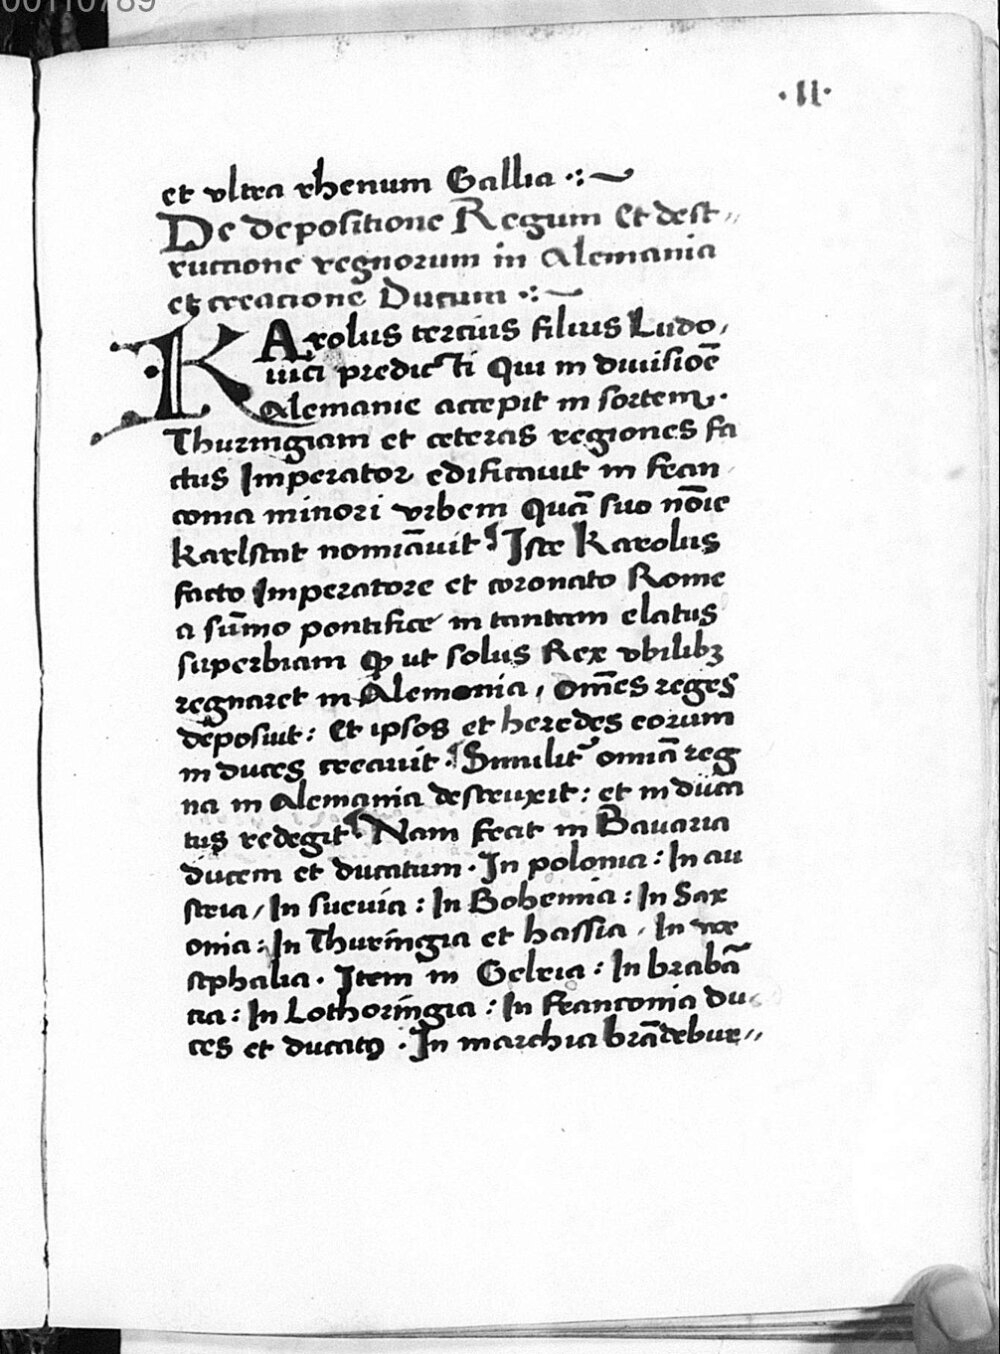 00110789
·11·
et vltra rhenum Gallia ·:~
De depositione Regum Et dest„
ructione regnorum in Alemania
et creatione Ducum ·:~
KArolus tercius filius Ludo,
uici predicti Qui in diuisioē
Alemanie accepit in sortem.·
Thuringiam et ceteras regiones fa
ctus Imperator edificauit in fran
conia minori vrbem Quā suo nōie
karlstat nomiāuit ¶ Iste Karolus
facto Imperatore et coronato Rome
a sūmo pontifice in tantam elatus
superbiam Ꝙ ut solus Rex vbilibꝫ
regnaret in Alemonia, om̄es reges
deposuit: Et ipsos et heredes eorum
in duces creauit · ¶ Similit᷑ omniā reg
na in Alemania destruxit: et in duca
tus redegit ¶· Nam fecit in Bauaria
ducem et ducatum · In polonia: In au
stria / In sueuia: In Bohemia: In Sax
onia: In Thuringia et hassia · In we
stphalia · Item in Gelria: In brabā
tia: In Lothoringia: In franconia du
ces et ducatꝰ · In marchia brādebur„